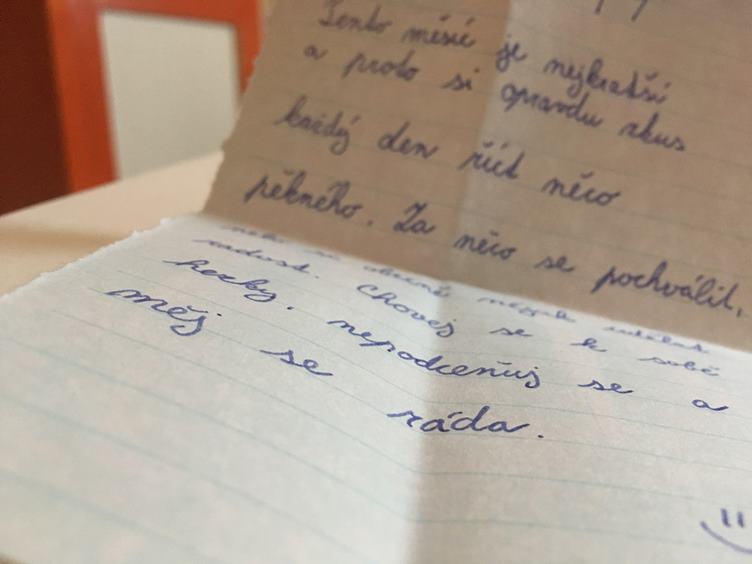 Tento měsíc je nejkratší
a proto si opravdu zkus
každý den říct něco
pěkného. Za něco se pochválit,
radost. Chovej se k sobě
hezky, nepodceňuj se a
měj se ráda.